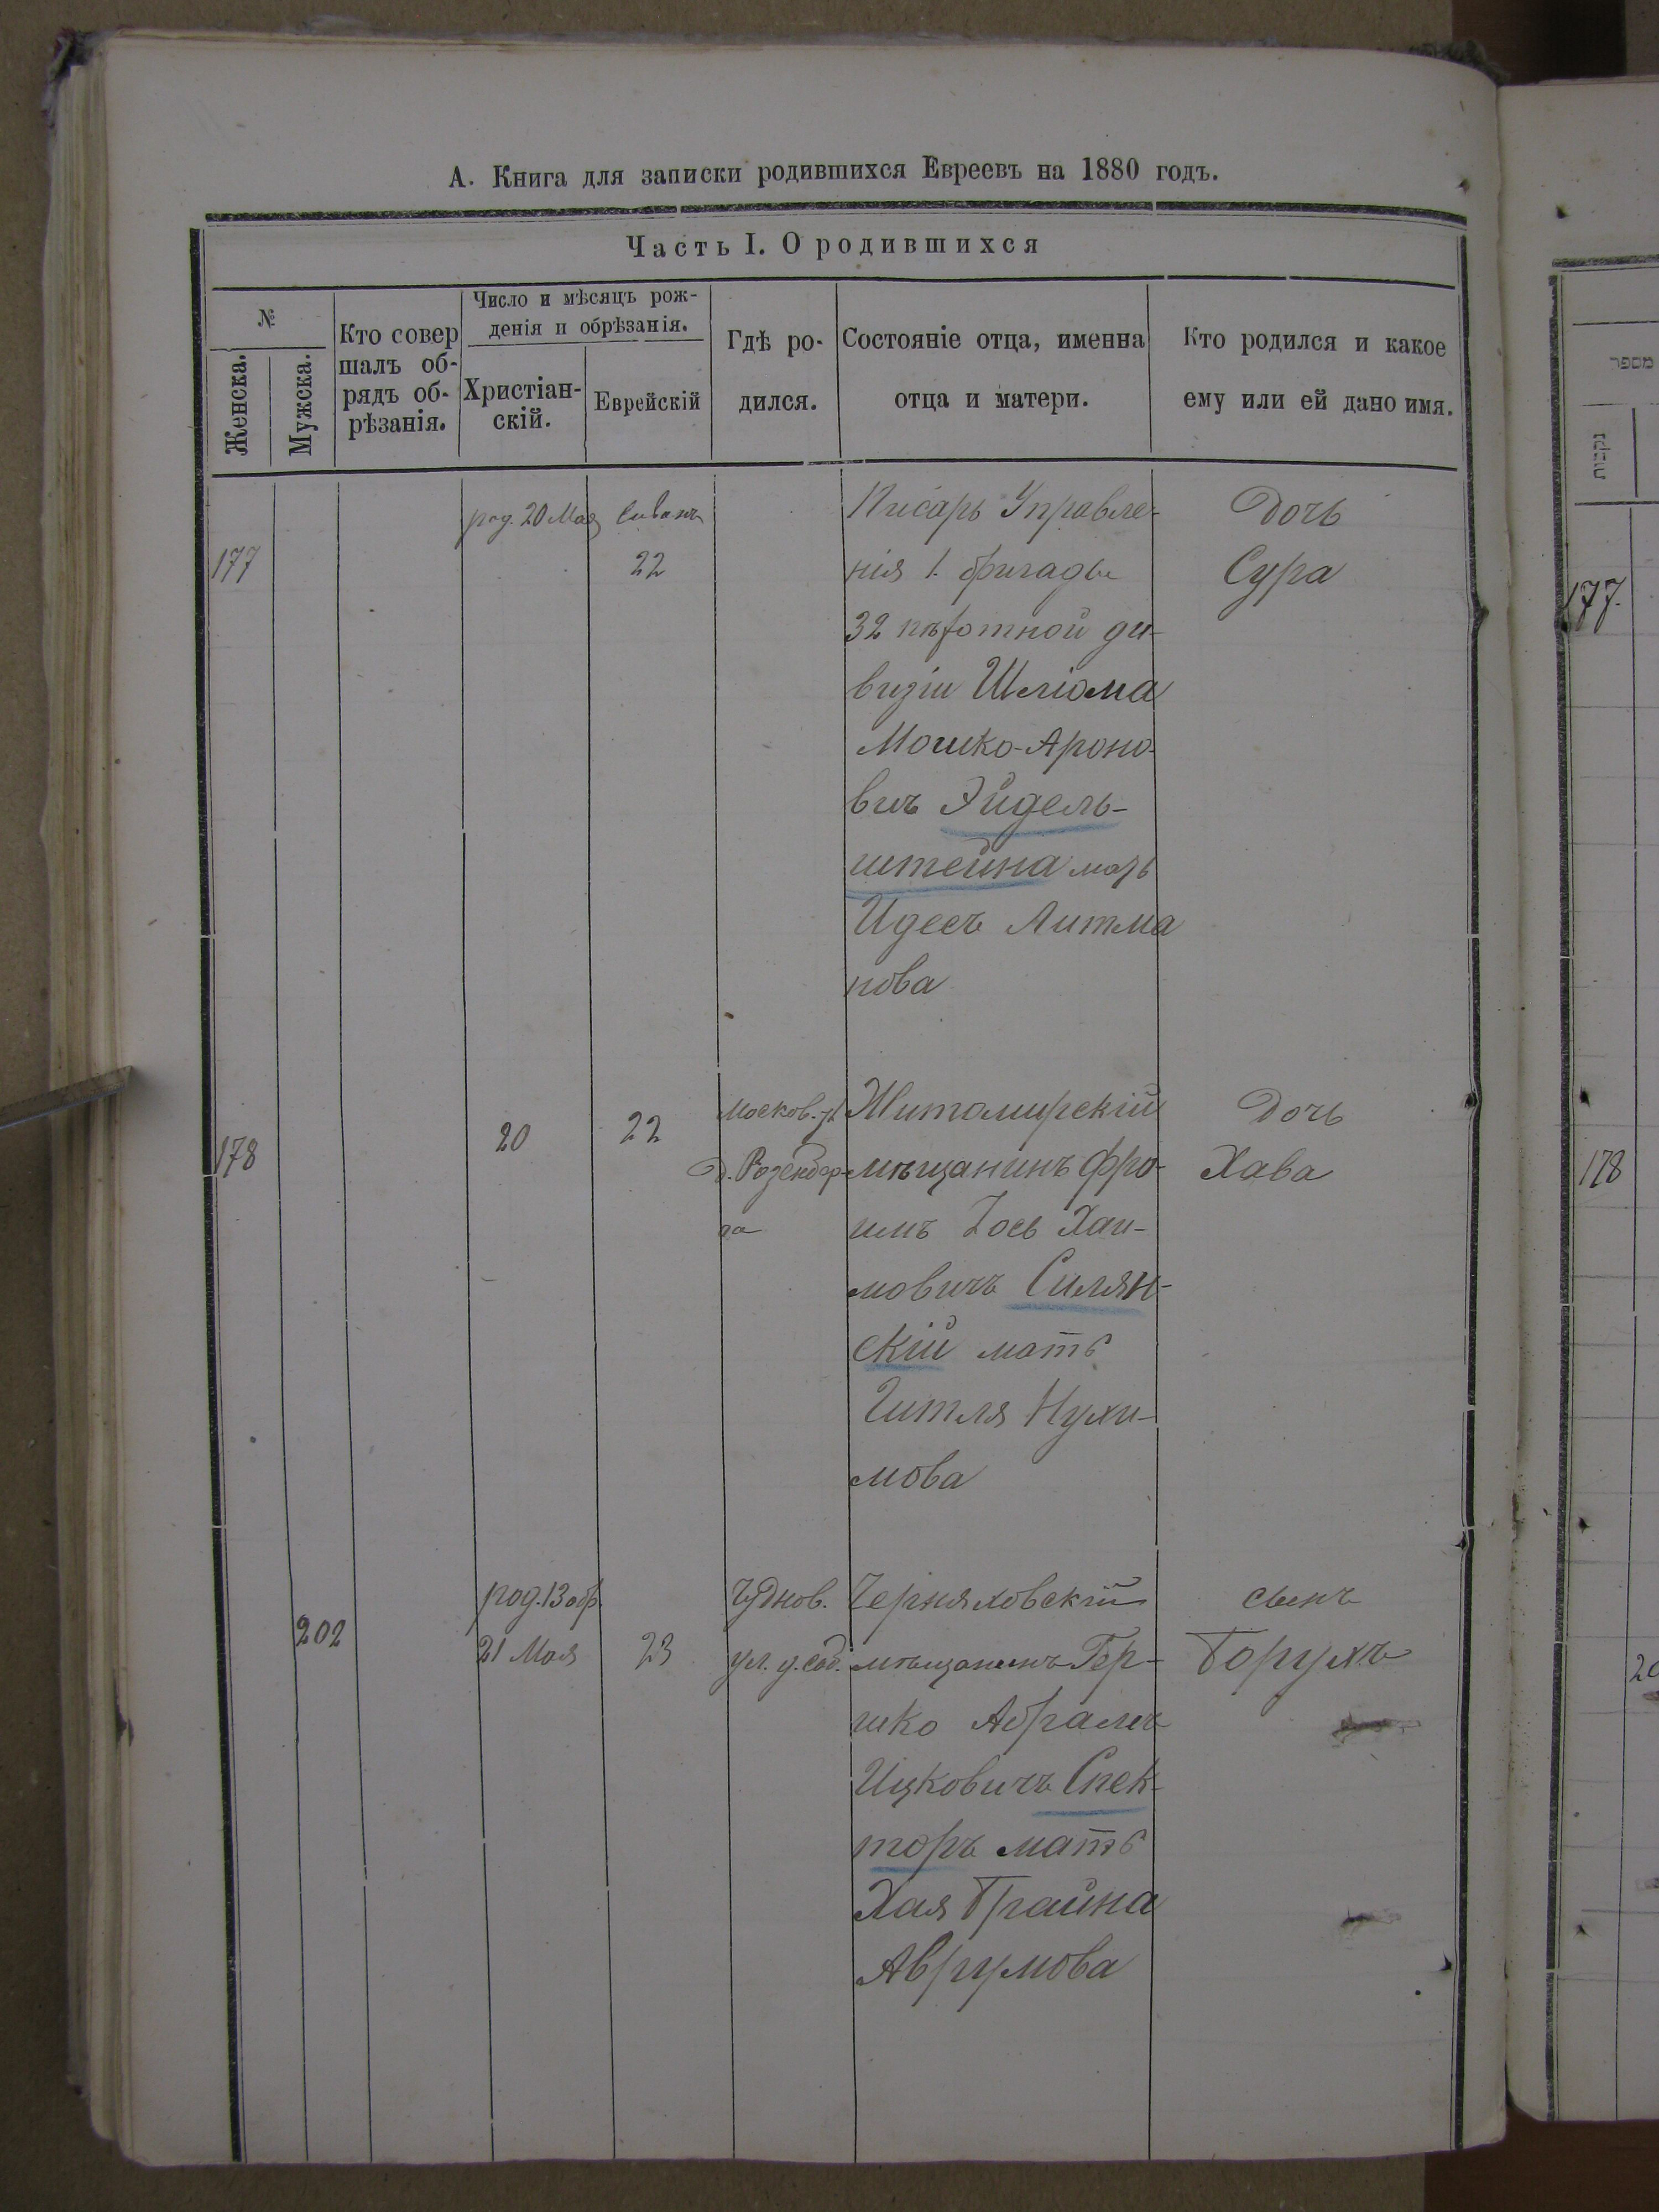 А. Книга для записки родившихся Евреевъ на 1880 годъ.
Часть I. О родившихся
№
Женска.
Мужска.
Кто совер
шалъ об-
рядъ об-
рѣзанія.
Число и мѣсяцъ рож-
денія и обрѣзанія.
Христіан-
скій.
Еврейскій
Гдѣ ро-
дился.
Состояніе отца, именна
отца и матери.
Кто родился и какое
ему или ей дано имя.
177
род. 20 Мая
Сиванъ
22
Писарь Управле-
нія 1. бригады
32 пѣхотной ди-
визіи Шліома
Мошко-Ароно-
вичъ Эйдель-
штейна мать
Идесъ Литма
нова
Дочь
Сура
178
20
22
Москов. ул
д. Розенбер-
га
Житомирскій
мѣщанинъ Фро-
имъ Іось Хаи-
мовичъ Силян-
скій мать
Гитля Нухи-
мова
Дочь
Хава
202
род. 13 обр.
21 Мая
23
Чуднов.
ул. д. соб.
Черняховскій
мѣщанинъ Гер-
шко Абрамъ
Ицковичъ Спек-
торъ мать
Хая Брайна
Аврумова
сынъ
Борухъ
מספר
נקבות
177.
178
20